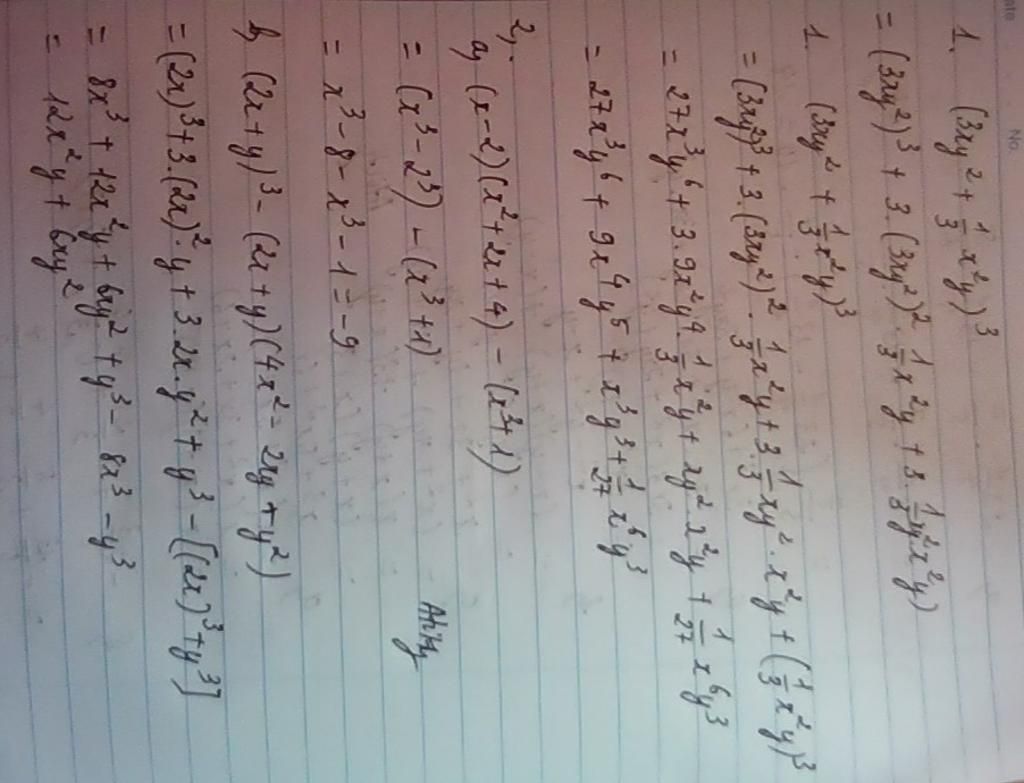 ate No.
1. (3xy² + 1/3 x²y)³
= (3xy²)³ + 3.(3xy²)². 1/3 x²y + 3. 1/3 y²x²y)
1. (3xy² + 1/3 x²y)³
= (3xy²)³ + 3.(3xy²)² . 1/3 x²y + 3 1/3 xy². x²y + (1/3 x²y)³
= 27x³y⁶ + 3.9x²y⁴. 1/3 x²y + xy² x²y + 1/27 x⁶y³
= 27x³y⁶ + 9x⁴y⁵ + x³y³ + 1/27 x⁶y³
2,
a, (x-2)(x²+2x+4) - (x³+1)
= (x³ - 2³) - (x³+1)
= x³ - 8 - x³ - 1 = -9
b, (2x+y)³ - (2x+y)(4x² - 2xy + y²)
= (2x)³ + 3.(2x)². y + 3. 2x. y² + y³ - [(2x)³ + y³]
= 8x³ + 12x²y + 6xy² + y³ - 8x³ - y³
= 12x²y + 6xy²